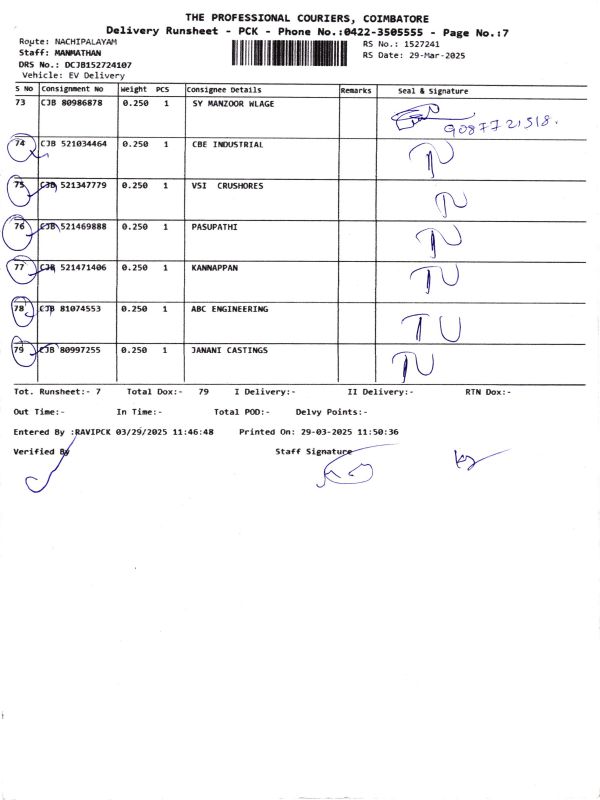 THE PROFESSIONAL COURIERS, COIMBATORE
Delivery Runsheet - PCK - Phone No.:0422-3505555 - Page No.:7
Route: NACHIPALAYAM RS No.: 1527241
Staff: MANMATHAN RS Date: 29-Mar-2025
DRS No.: DCJB152724107
Vehicle: EV Delivery
S No Consignment No Weight PCS Consignee Details Remarks Seal & Signature
73 CJB 80986878 0.250 1 SY MANZOOR WLAGE
9087721518.
74 CJB 521034464 0.250 1 CBE INDUSTRIAL TU
75 CJB 521347779 0.250 1 VSI CRUSHORES TU
76 CJB 521469888 0.250 1 PASUPATHI TU
77 CJB 521471406 0.250 1 KANNAPPAN TU
78 CJB 81074553 0.250 1 ABC ENGINEERING TU
79 CJB 80997255 0.250 1 JANANI CASTINGS TU
Tot. Runsheet:- 7 Total Dox:- 79 I Delivery:- II Delivery:- RTN Dox:-
Out Time:- In Time:- Total POD:- Delvy Points:-
Entered By :RAVIPCK 03/29/2025 11:46:48 Printed On: 29-03-2025 11:50:36
Verified By Staff Signature